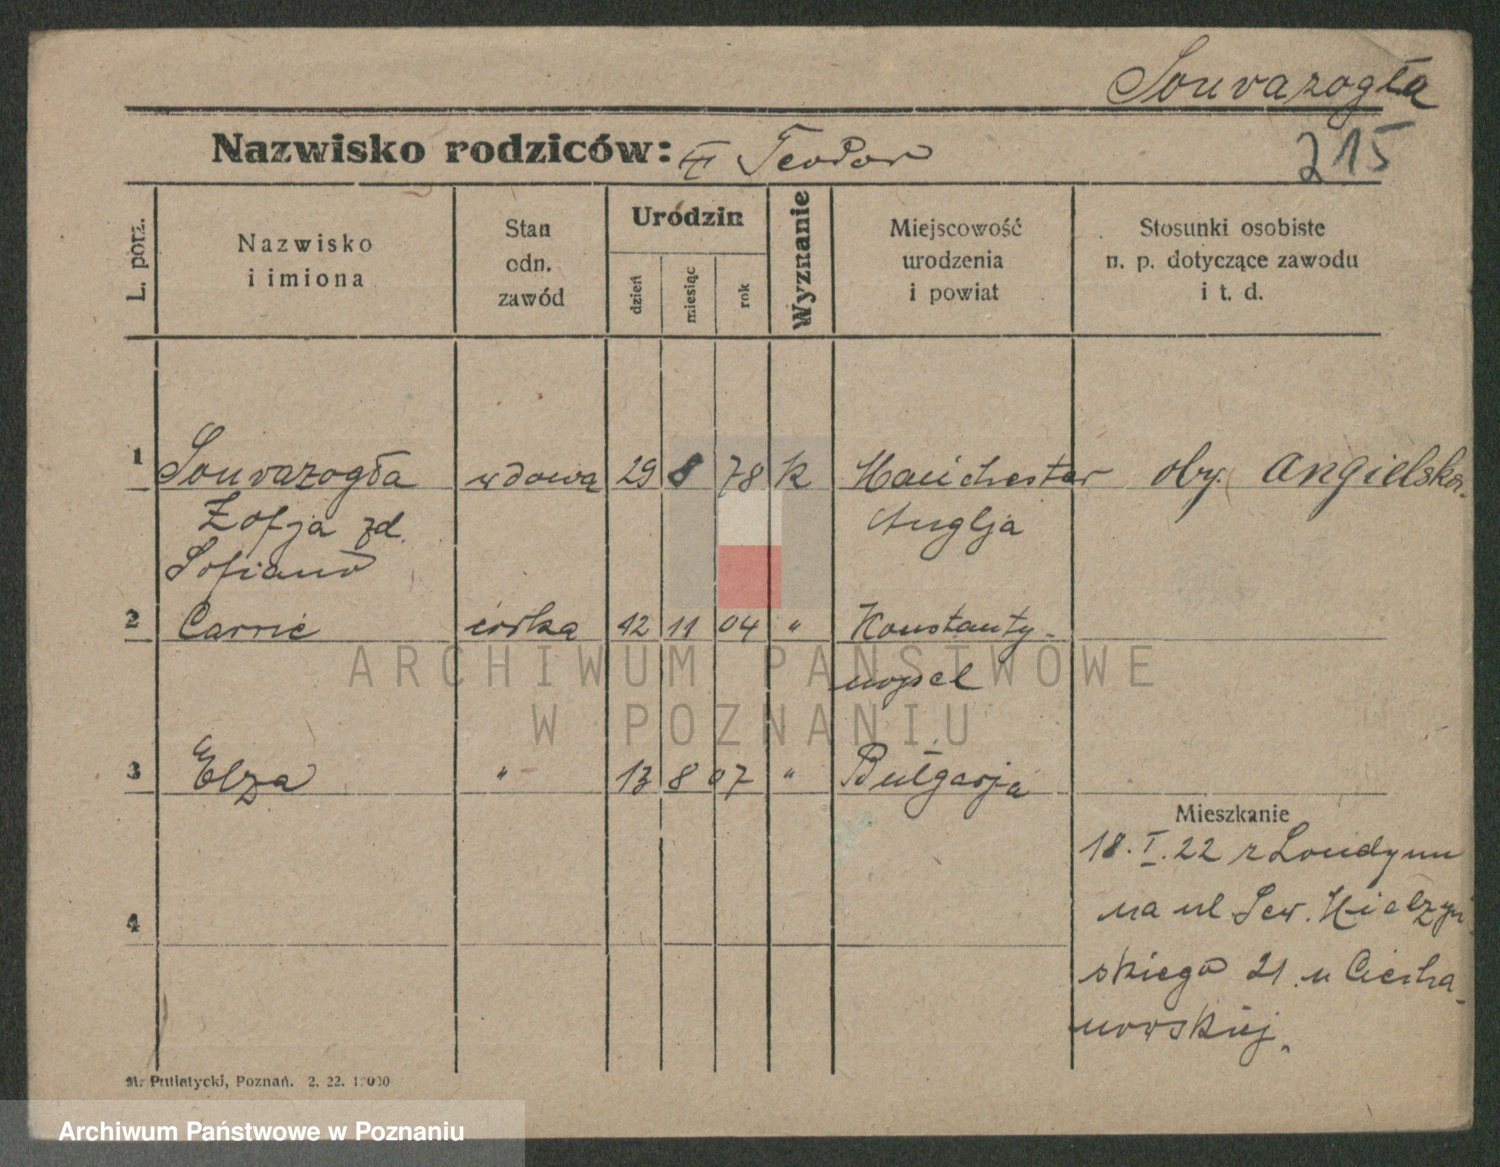 Souvazogła
Nazwisko rodziców: Teodor
215
L. porz.
Nazwisko
i imiona
Stan
odn.
zawód
Urodzin
dzień
miesiąc
rok
Wyznanie
Miejscowość
urodzenia
i powiat
Stosunki osobiste
n. p. dotyczące zawodu
i t. d.
1 Souvazogła wdowa 29 8 78 k Manchester oby. angielska
Zofja zd. Anglja
Sofiano
2 Carrie córka 12 11 04 " Konstanty-
nopel
3 Elza " 13 8 07 " Bułgarja
Mieszkanie
18. I. 22 z Londynu
4 na ul Sew. Mielżyń
skiego 21. u Ciecha-
nowskiej
M. Putiatycki, Poznań. 2. 22. 10000
ARCHIWUM PAŃSTWOWE
W POZNANIU
Archiwum Państwowe w Poznaniu